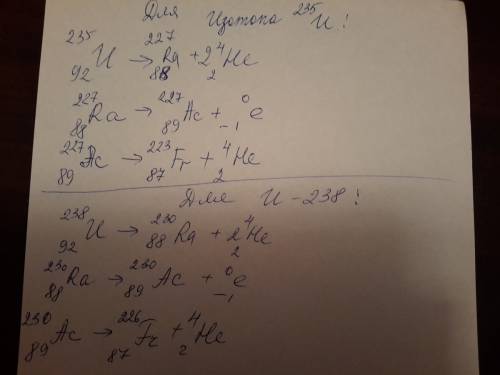 Для Изотопа ²³⁵U!
²³⁵₉₂U → ²²⁷₈₈Ra + 2⁴₂He
²²⁷₈₈Ra → ²²⁷₈₉Ac + ⁰₋₁e
²²⁷₈₉Ac → ²²³₈₇Fr + ⁴₂He
Для U-238!
²³⁸₉₂U → ²³⁰₈₈Ra + 2⁴₂He
²³⁰₈₈Ra → ²³⁰₈₉Ac + ⁰₋₁e
²³⁰₈₉Ac → ²²⁶₈₇Fr + ⁴₂He